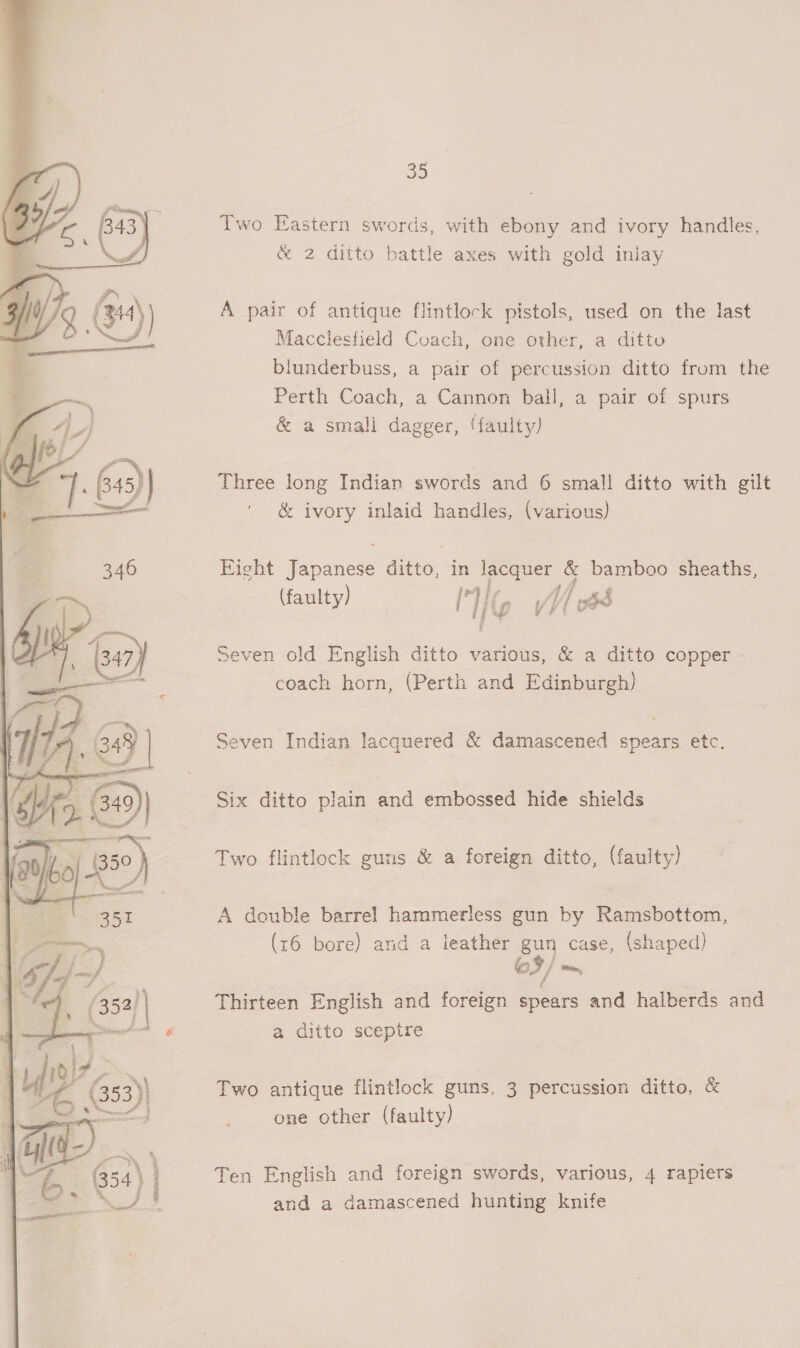 35
343 Two Eastern swords, with ebony and ivory handles,
& 2 ditto battle axes with gold inlay
344 A pair of antique flintlock pistols, used on the last
Macclesfield Coach, one other, a ditto
blunderbuss, a pair of percussion ditto from the
Perth Coach, a Cannon ball, a pair of spurs
& a small dagger, (faulty)
345 Three long Indian swords and 6 small ditto with gilt
& ivory inlaid handles, (various)
346 Eight Japanese ditto, in lacquer & bamboo sheaths,
(faulty)
347 Seven old English ditto various, & a ditto copper
coach horn, (Perth and Edinburgh)
348 Seven Indian lacquered & damascened spears etc.
349 Six ditto plain and embossed hide shields
350 Two flintlock guns & a foreign ditto, (faulty)
351 A double barrel hammerless gun by Ramsbottom,
(16 bore) and a leather gun case, (shaped)
352 Thirteen English and foreign spears and halberds and
a ditto sceptre
353 Two antique flintlock guns, 3 percussion ditto, &
one other (faulty)
354 Ten English and foreign swords, various, 4 rapiers
and a damascened hunting knife